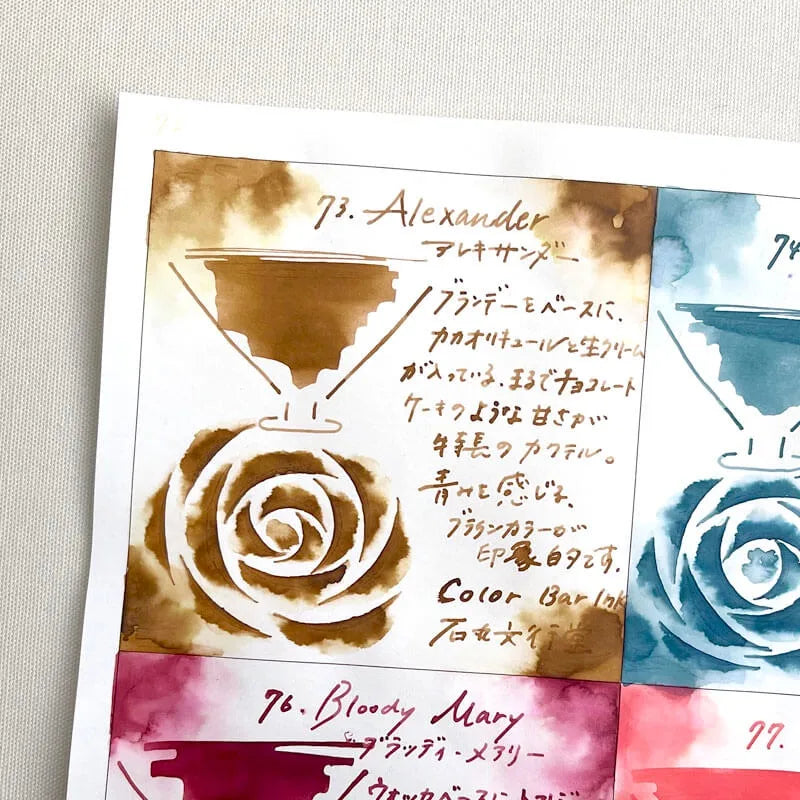 73. Alexander
アレキサンダー
ブランデーをベースに、
カカオリキュールと生クリーム
が入っている、まるでチョコレート
ケーキのような甘さが
特長のカクテル。
青みを感じる、
ブラウンカラーが
印象的です。
Color Bar Ink
石丸文行堂
74
76. Bloody Mary
ブラッディ・メアリー
ウォッカベースにトマト
77.